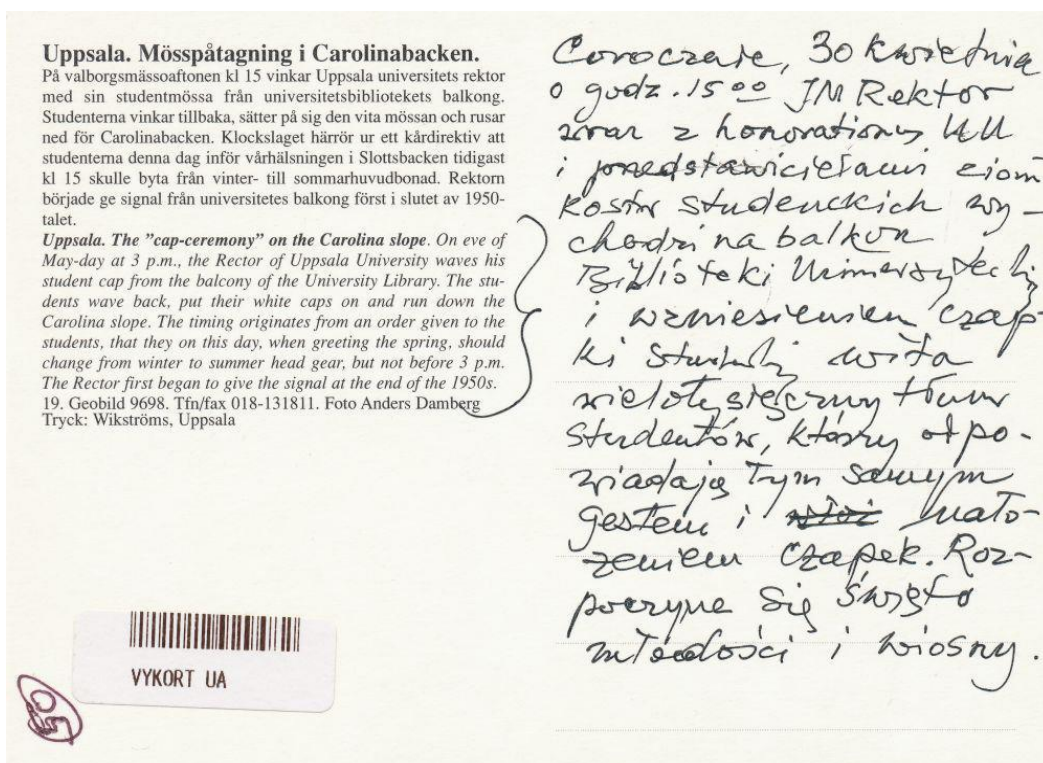 Uppsala. Mösspåtagning i Carolinabacken.
På valborgsmässoaftonen kl 15 vinkar Uppsala universitets rektor
med sin studentmössa från universitetsbibliotekets balkong.
Studenterna vinkar tillbaka, sätter på sig den vita mössan och rusar
ned för Carolinabacken. Klockslaget härrör ur ett kårdirektiv att
studenterna denna dag inför vårhälsningen i Slottsbacken tidigast
kl 15 skulle byta från vinter- till sommarhuvudbonad. Rektorn
började ge signal från universitetes balkong först i slutet av 1950-
talet.
Uppsala. The ”cap-ceremony” on the Carolina slope. On eve of
May-day at 3 p.m., the Rector of Uppsala University waves his
student cap from the balcony of the University Library. The stu-
dents wave back, put their white caps on and run down the
Carolina slope. The timing originates from an order given to the
students, that they on this day, when greeting the spring, should
change from winter to summer head gear, but not before 3 p.m.
The Rector first began to give the signal at the end of the 1950s.
19. Geobild 9698. Tfn/fax 018-131811. Foto Anders Damberg
Tryck: Wikströms, Uppsala
VYKORT UA
Corocznie, 30 kwietnia
o godz. 15 00 JM Rektor
wraz z honorationus UU
i przedstawicielami ziom
kostw studenckich wy-
chodzi na balkon
Biblioteki Uniwersytecki
i wzniesieniem czap-
ki wita
wielotysięczny tłum
studentów, którzy odpo-
wiadają tym samym
gestem i nało-
żeniem czapek. Roz-
poczyna się święto
młodości i wiosny.